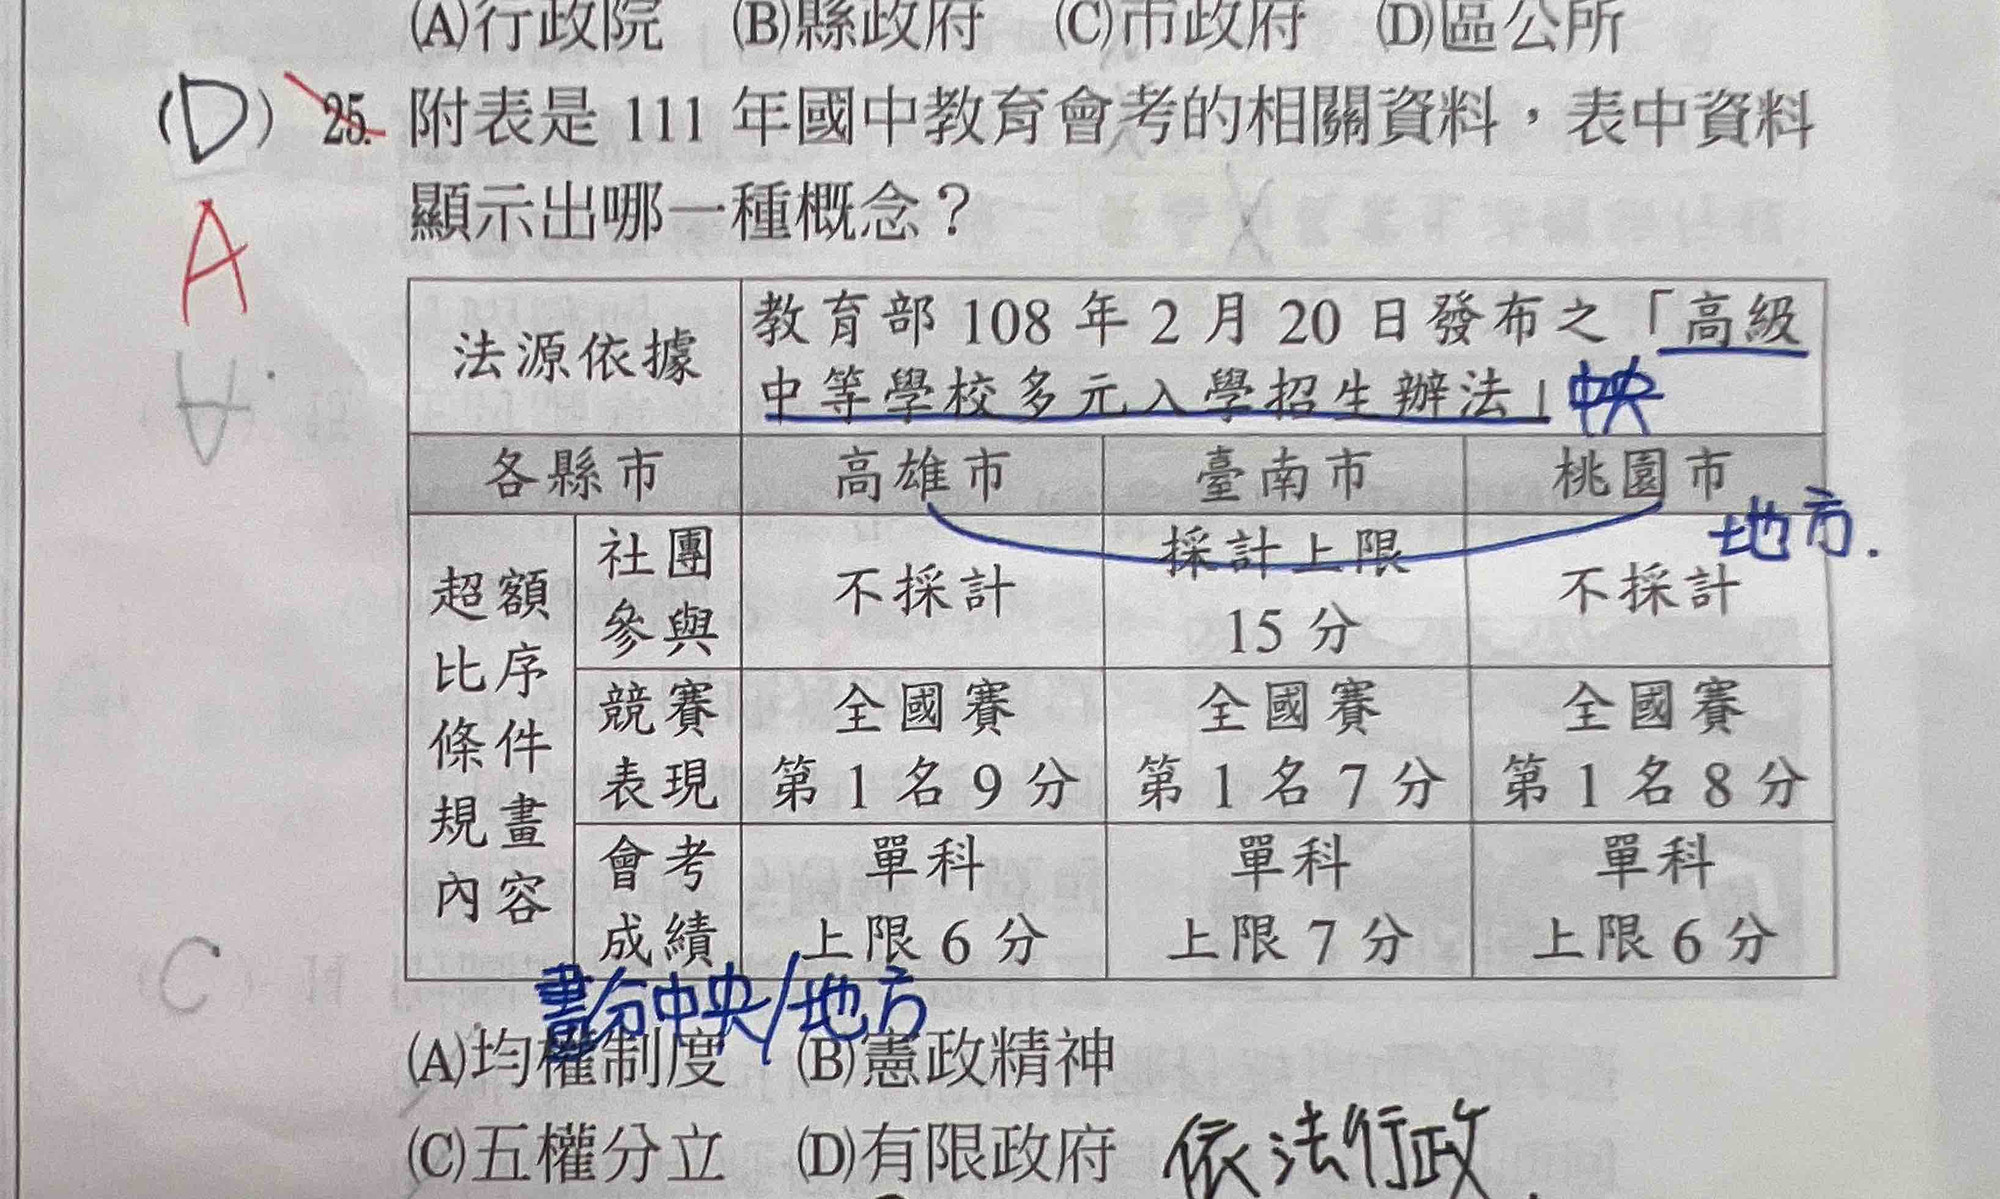 (A)行政院 (B)縣政府 (C)市政府 (D)區公所
(D) 25. 附表是 111 年國中教育會考的相關資料，表中資料
顯示出哪一種概念？
A
A
法源依據
教育部 108 年 2 月 20 日發布之「高級
中等學校多元入學招生辦法」 中央
各縣市 高雄市 臺南市 桃園市
地方.
超額
比序
條件
規畫
內容
社團
參與
不採計
採計上限
15 分
不採計
競賽
表現
全國賽
第 1 名 9 分
全國賽
第 1 名 7 分
全國賽
第 1 名 8 分
會考
成績
單科
上限 6 分
單科
上限 7 分
單科
上限 6 分
C
劃分中央/地方
(A)均權制度 (B)憲政精神
(C)五權分立 (D)有限政府 依法行政